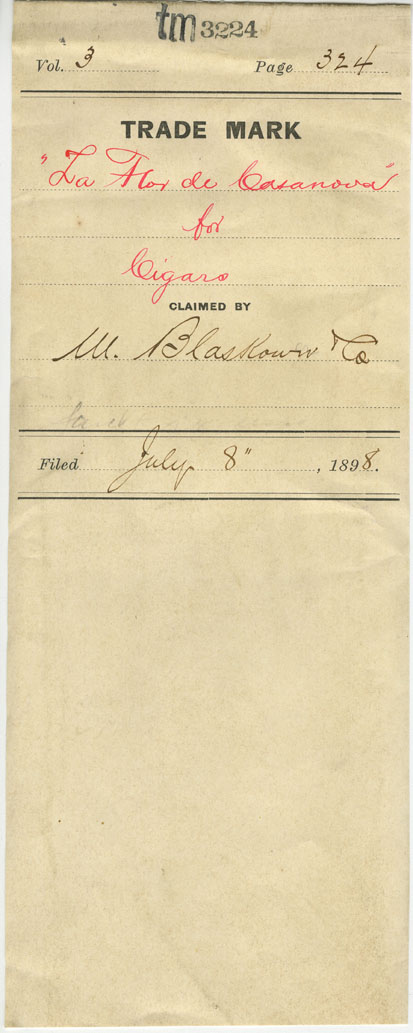 tm 3224
Vol. 3 Page 324
TRADE MARK
"La Flor de Casanova"
for
Cigars
CLAIMED BY
M. Blaskower & Co
Filed July 8" , 1898.